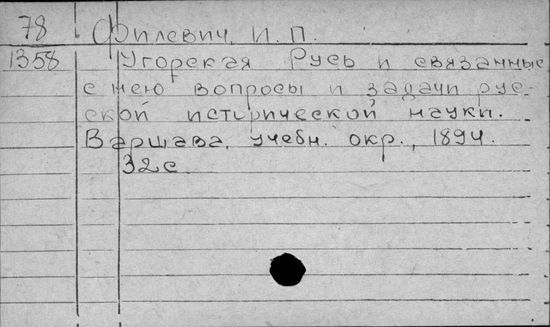 78 Филевич, И. П.
1358 Угорская Русь и связанные
с нею вопросы и задачи рус-
ской исторической науки.
Варшава, учебн. окр., 1894.
32 с